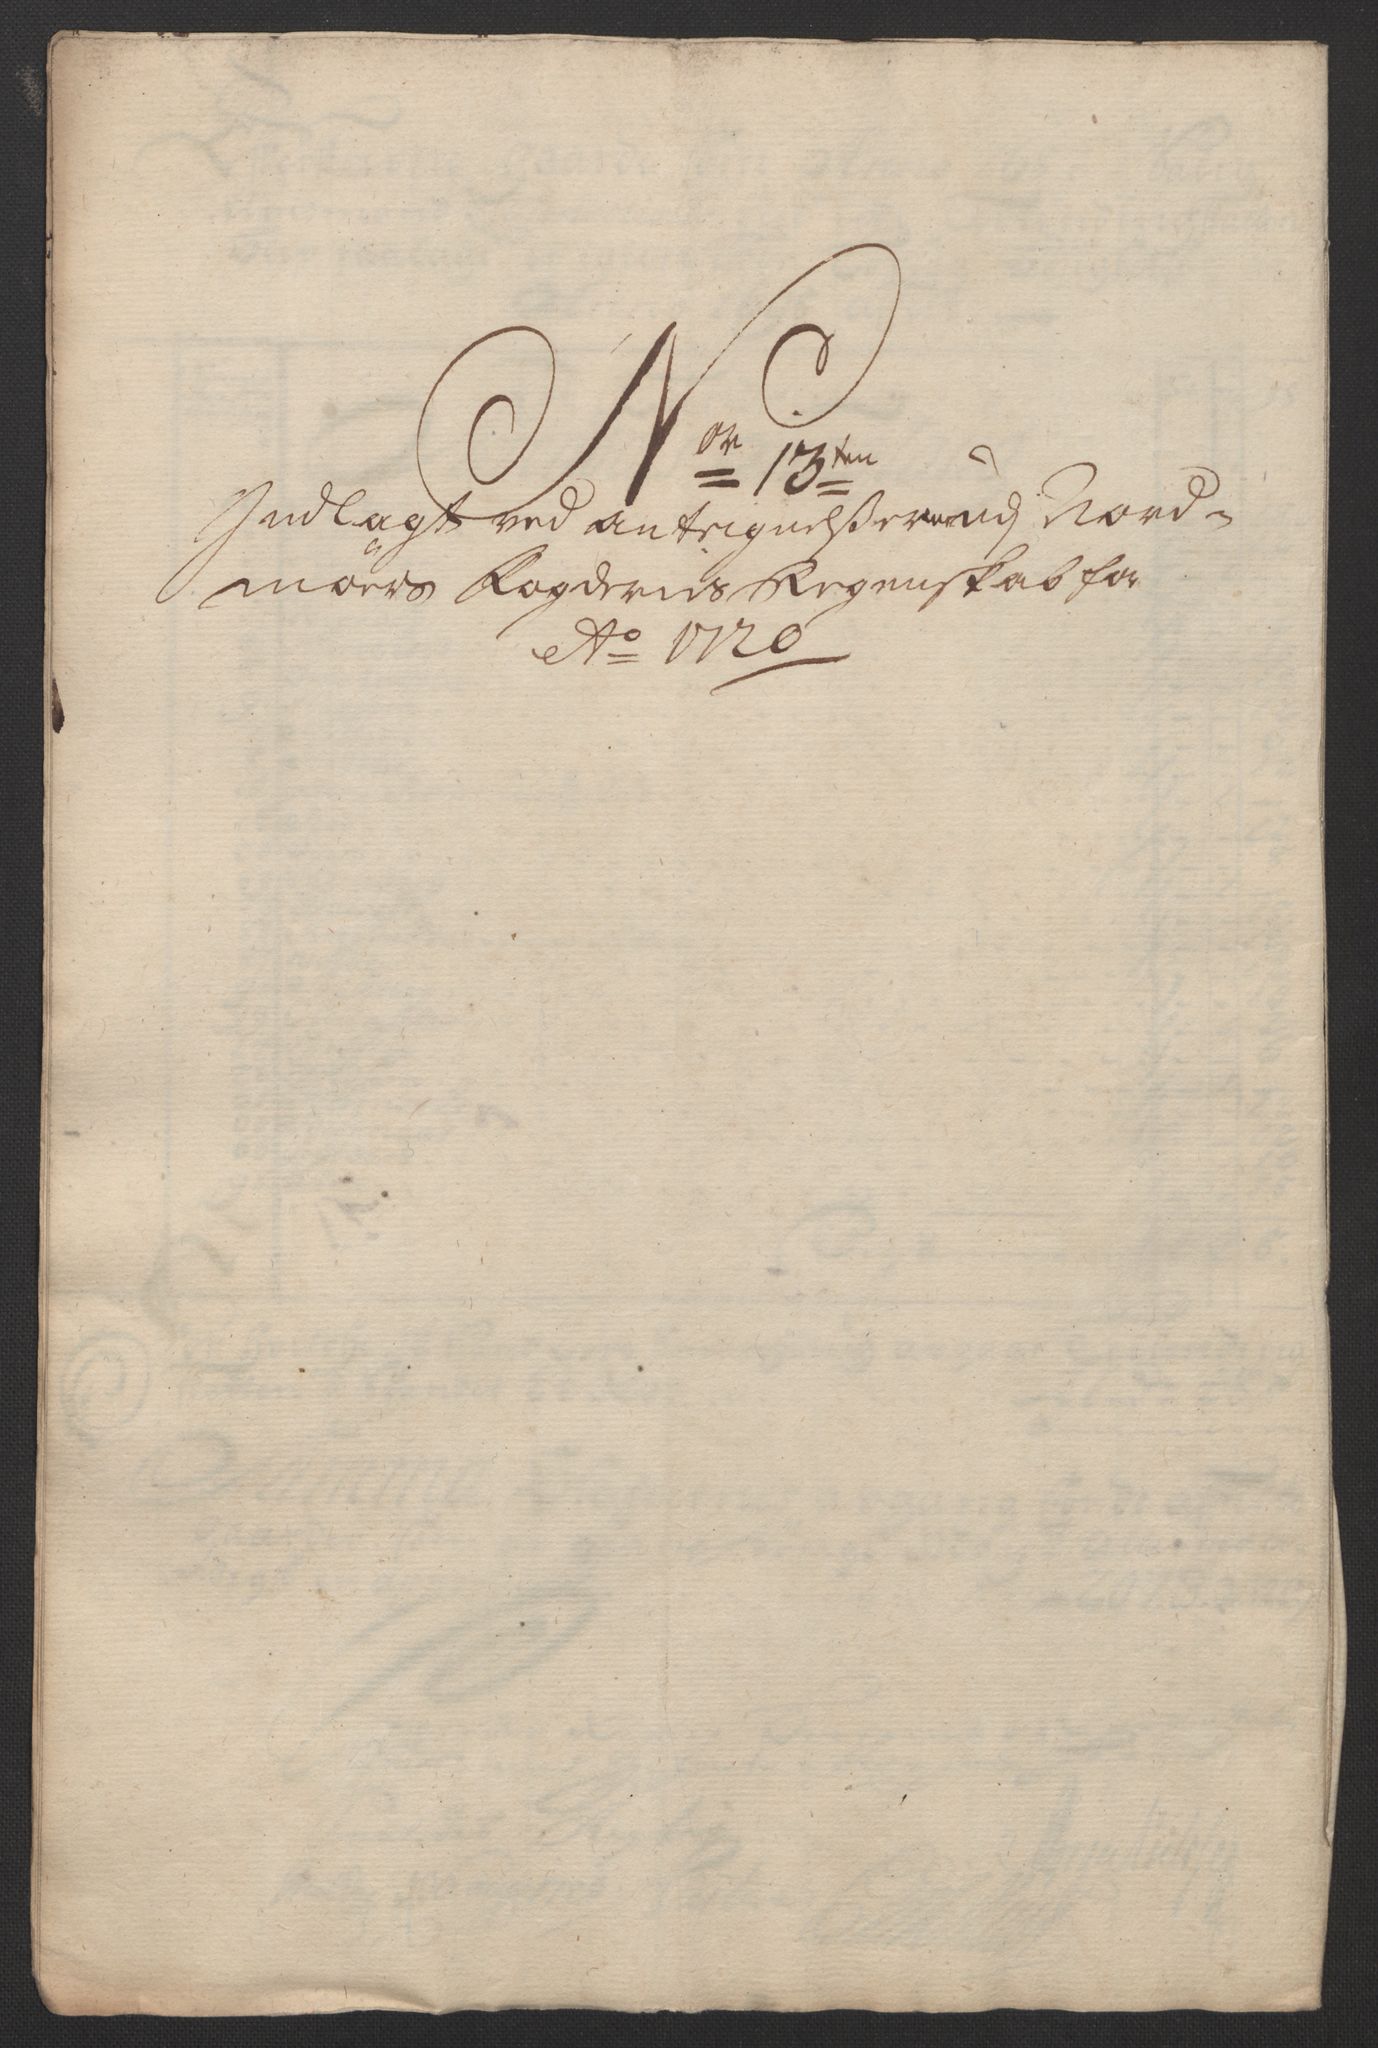 Nor 13ten
Indlagt ved antegnelßerne udj Nord-
möers Fogderies Regenskab for
Ao 1720